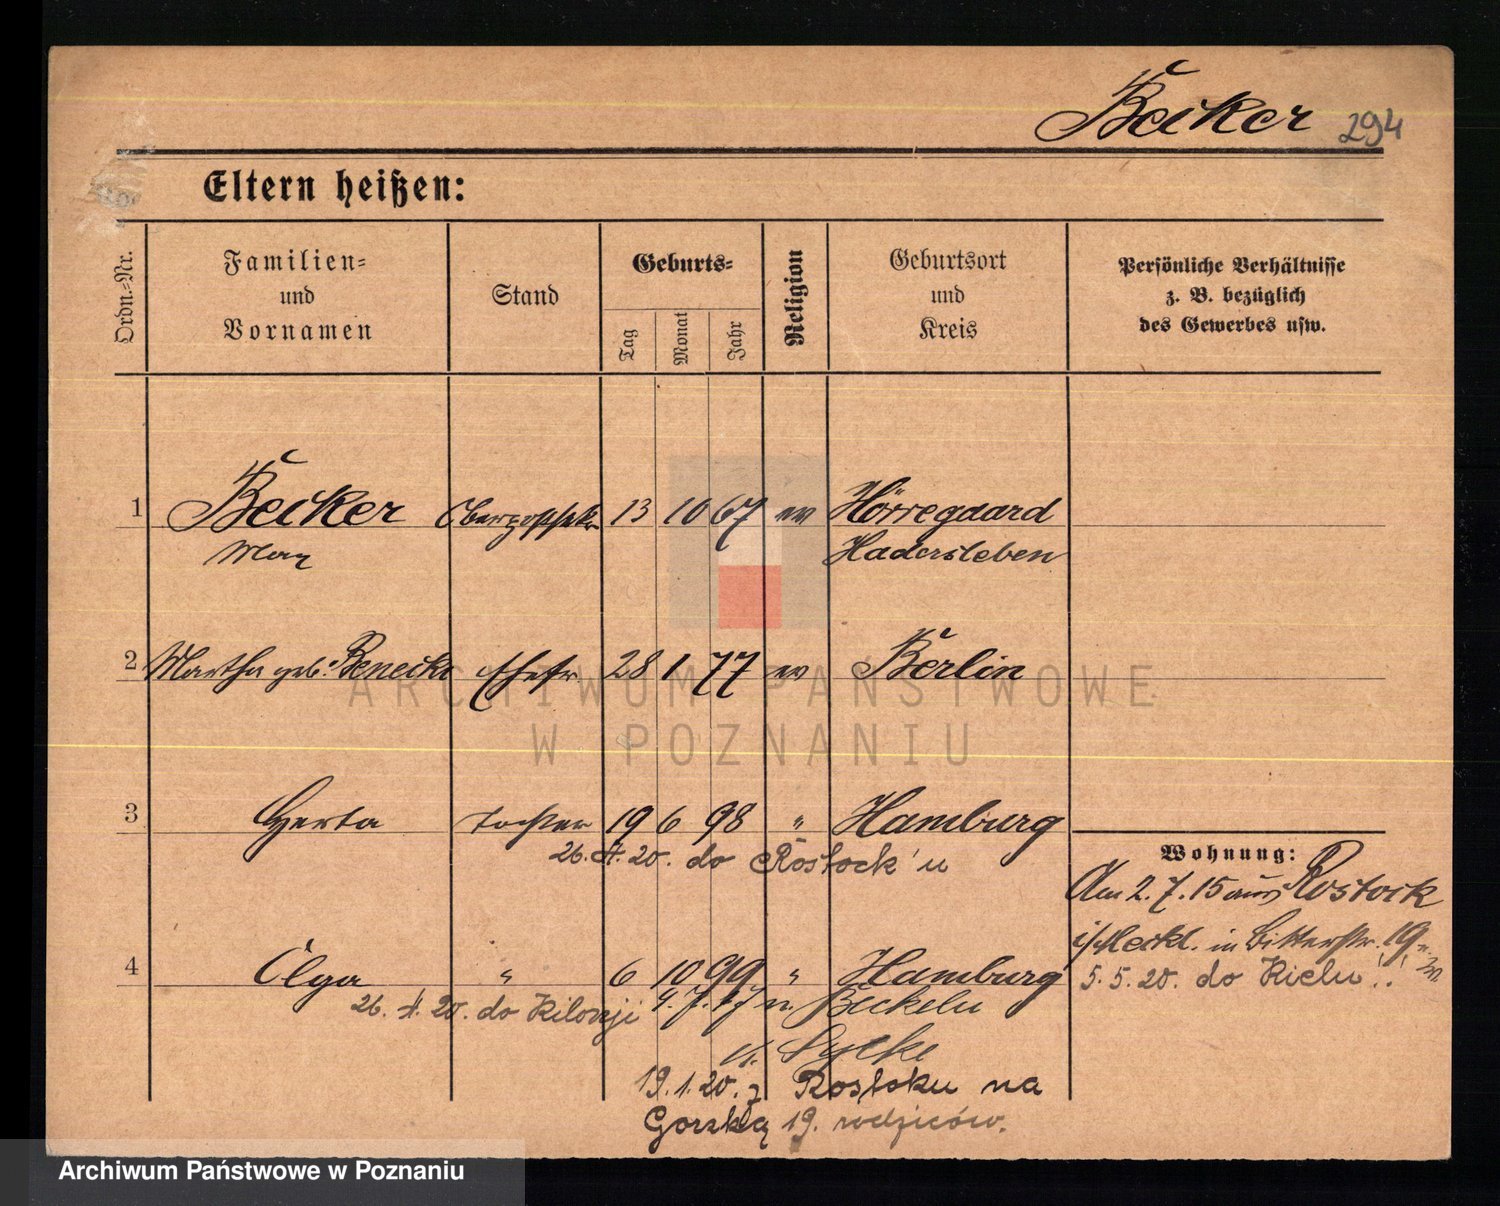 Becker 294
Eltern heißen:
Ordn.-Nr.
Familien-
und
Vornamen
Stand
Geburts-
Tag
Monat
Jahr
Religion
Geburtsort
und
Kreis
Persönliche Verhältnisse
z. B. bezüglich
des Gewerbes usw.
1 Becker 13 10 67 ev Hörregaard
Max Hadersleben
2 Martha geb. Benecke Ehefr. 28 1 77 ev Berlin
3 Herta Tochter 19 6 98 " Hamburg
26. 4. 20. do Rostock'u
Wohnung:
Am 2. 7. 15 aus Rostock
i/Meckl. in Bitterstr. 19
5. 5. 20. do Kielu
4 Olga " 6 10 99 " Hamburg
26. 4. 20. do Kilonji 9. 7. 17 n.
19. 1. 20. z Rostoku na
Gorzką 19. rodziców.
ARCHIWUM PAŃSTWOWE
W POZNANIU
Archiwum Państwowe w Poznaniu